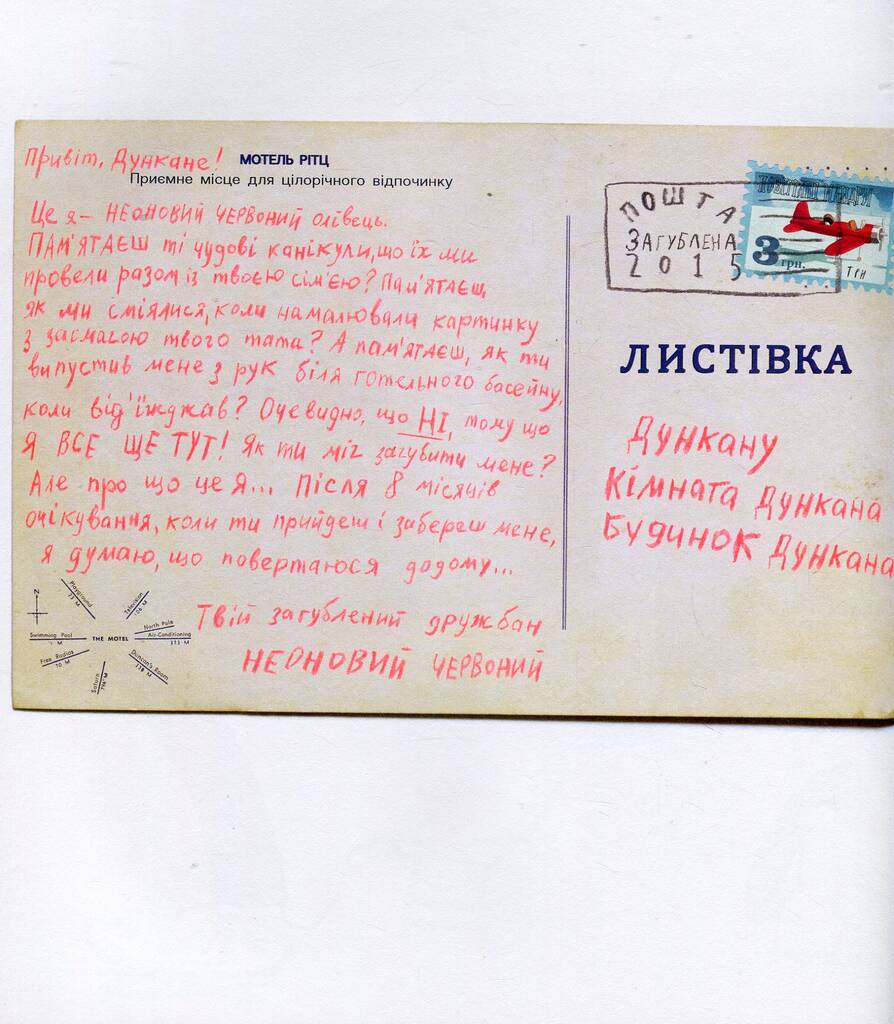 Привіт, Дункане!
МОТЕЛЬ РІТЦ
Приємне місце для цілорічного відпочинку
Це я – НЕОНОВИЙ ЧЕРВОНИЙ олівець.
ПАМ'ЯТАЄШ ті чудові канікули, що їх ми
провели разом із твоєю сім'єю? Пам'ятаєш,
як ми сміялися, коли намалювали картинку
з засмагою твого тата? А пам'ятаєш, як ти
випустив мене з рук біля готельного басейну,
коли від'їжджав? Очевидно, що НІ, тому що
Я ВСЕ ЩЕ ТУТ! Як ти міг загубити мене?
Але про що це я... Після 8 місяців
очікування, коли ти прийдеш і забереш мене,
я думаю, що повертаюся додому...
Твій загублений дружбан
НЕОНОВИЙ ЧЕРВОНИЙ
N
Playground
73 M
Television
North Pole
Swimming Pool
M
THE MOTEL
Air-Conditioning
Free Radios
10 M
Duncan's Room
Saturn
ПОШТА
ЗАГУБЛЕНА
2015
3 грн.
ЛИСТІВКА
Дункану
Кімната Дункана
Будинок Дункана